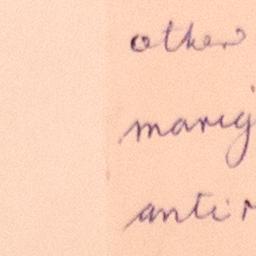 other
marig
antir